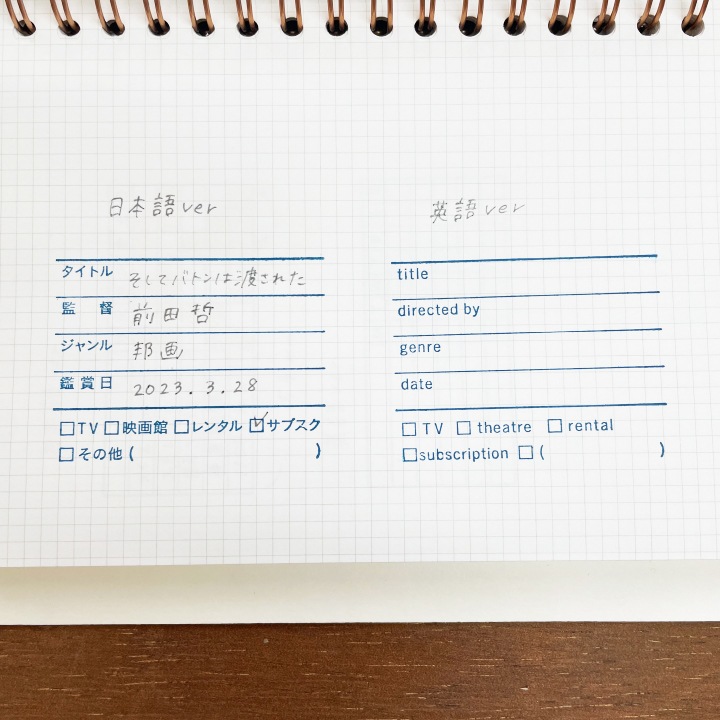 日本語ver
タイトル そしてバトンは渡された
監督 前田哲
ジャンル 邦画
鑑賞日 2023.3.28
□TV □映画館 □レンタル ☑サブスク
□その他 ( )
英語ver
title
directed by
genre
date
□ TV □ theatre □ rental
□subscription □ ( )